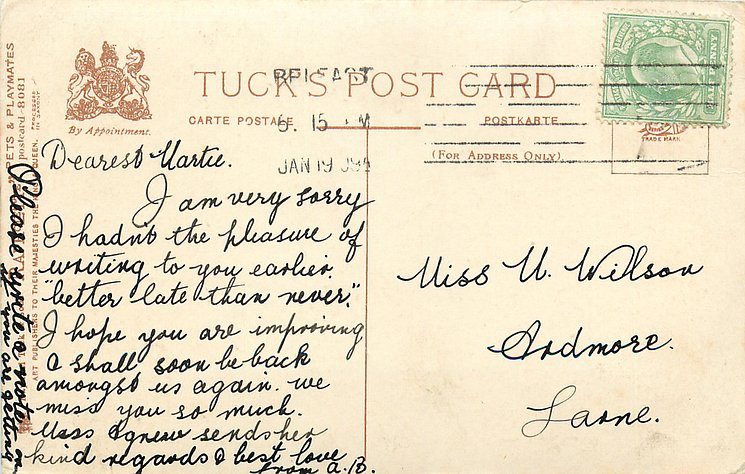 TUCK'S POST CARD
CARTE POSTALE
POSTKARTE
(FOR ADDRESS ONLY)
By Appointment.
BELFAST
5. 15 PM
JAN 19 09
TRADE MARK
HALF PENNY
PETS & PLAYMATES
postcard 8081
PROCESSED
IN SAXONY
ART PUBLISHERS TO THEIR MAJESTIES THE KING QUEEN.
Dearest Martie.
I am very sorry
I hadn't the pleasure of
writing to you earlier.
"better late than never."
I hope you are improving
& shall soon be back
amongst us again. we
miss you so much.
Miss Agnew sends her
kind regards & best love
from a. B.
Please write a note
you are getting
Miss M. Wilson
Ardmore.
Larne.